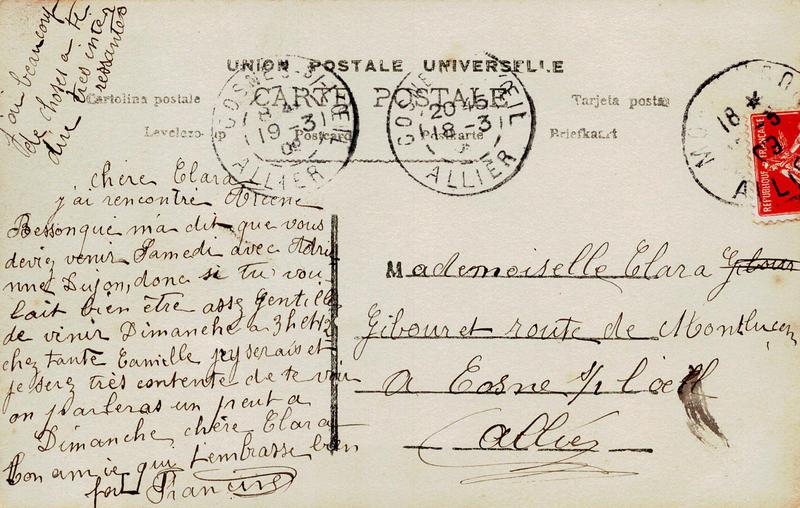 j'ai beaucoup
de choses a te
dire très inté
ressantes
UNION POSTALE UNIVERSELLE
CARTE POSTALE
Cartolina postale
Tarjeta postal
Postcard
Postkarte
Briefkaart
COSNE-S-L'ŒIL
19 -3
ALLIER
COSNE L'ŒIL
20 45
18 -3
ALLIER
18 -3
09
REPUBLIQUE FRANÇAISE
chère Clara
j'ai rencontré
m'a dit que vous
deviez venir Samedi avec Adri
nne Dujon, donc si tu vou
lait bien être assez gentille
de venir Dimanche a 3h et 1/2
chez tante Camille j'y serais et
je serez très contente de te voir
on parleras un peut a
Dimanche chère Clara
Ton amie qui t'embrasse bien
fort Francine
Mademoiselle Clara Gibour
Gibouret route de Montluçon
a Cosne s/ l'œil
Allier